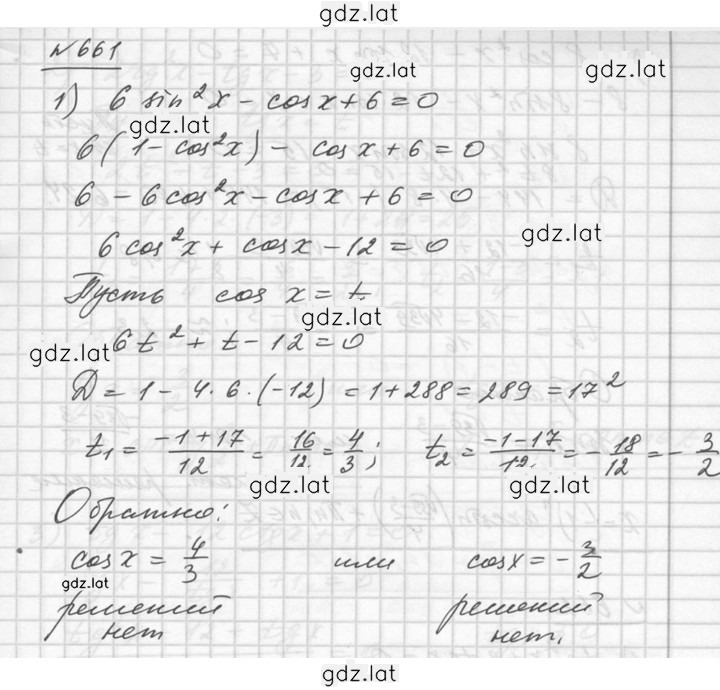 gdz.lat
№661
gdz.lat
gdz.lat
1) 6 sin²x - cos x + 6 = 0
gdz.lat
6(1 - cos²x) - cos x + 6 = 0
6 - 6cos²x - cos x + 6 = 0
gdz.lat
6 cos²x + cos x - 12 = 0
Пусть cos x = t.
gdz.lat
6t² + t - 12 = 0
gdz.lat
D = 1 - 4·6·(-12) = 1 + 288 = 289 = 17²
t₁ = (-1+17)/12 = 16/12 = 4/3; t₂ = (-1-17)/12 = -18/12 = -3/2
gdz.lat gdz.lat
Обратно:
cos x = 4/3 или cos x = -3/2
gdz.lat
решений решений
нет нет.
gdz.lat